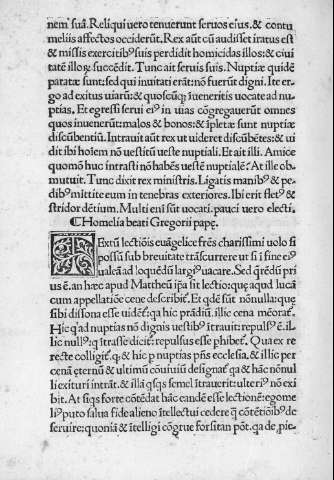 nem suã. Reliqui uero tenuerunt seruos eius. & contu
meliis affectos occiderũt. Rex aũt cũ audisset iratus est
& missis exercitibꝰ suis perdidit homicidas illos: & ciui
tatẽ illoꝝ succẽdit. Tunc ait seruis suis. Nuptiæ quidẽ
paratæ sunt: sed qui inuitati erãt: nõ fuerũt digni. Ite er-
go ad exitus uiarũ: & quoscũqꝫ ĩueneritis uocate ad nu
ptias. Et egressi serui eiꝰ in uias cõgregauerũt omnes
quos inuenerũt: malos & bonos: & ĩpletæ sunt nuptiæ
discũbentiũ. Intrauit aũt rex ut uideret discũbẽtes: & ui
dit ibi hoĩem nõ uestitũ ueste nuptiali. Et ait illi. Amice
quomõ huc intrasti nõ habẽs uestẽ nuptialẽ? At ille ob
mutuit. Tunc dixit rex ministris. Ligatis manibꝰ & pe-
dibꝰ mittite eum in tenebras exteriores. Ibi erit fletꝰ &
stridor dẽtium. Multi eni sũt uocati. pauci uero electi.
¶ Homelia beati Gregorii papę.
TExtũ lectiõis euãgelicę frẽs charissimi uolo si
possũ sub breuitate trãscurrere ut si ĩ fine eiꝰ
ualeã ad loquẽdũ largiꝰ uacare. Sed q̃rẽdũ pri
us ẽ. an hæc apud Mattheũ ip̃a sit lectio: quæ apud lucã
cum appellatiõne cenę describit̃. Et qdẽ sũt nõnulla: quę
sibi dissona esse uidẽt̃. qa hic prãdiũ. illic cena mẽorat̃.
Hic q̃ ad nuptias nõ dignis uestibꝰ ĩtrauit: repulsꝰ ẽ. il-
lic nullꝰ: q ĩtrasse dicit̃: repulsus esse phibet̃. Qua ex re
recte colligit̃. q̃ & hic p nuptias pñs ecclesia, & illic per
cenã ẽternũ & ultimũ cõuiuiũ designat̃. qa & hãc nõnul
li exituri ĩntrãt. & illã qsqs semel ĩtrauerit: ulteriꝰ nõ exi
bit. At siqs forte cõtẽdat hãc eandẽ esse lectionẽ: egome
liꝰ puto salua fide alieno ĩtellectui cedere q̃ cõtẽtiõibꝰ de
seruire: quoniã & ĩtelligi cõgrue forsitan põt. qa de pie-